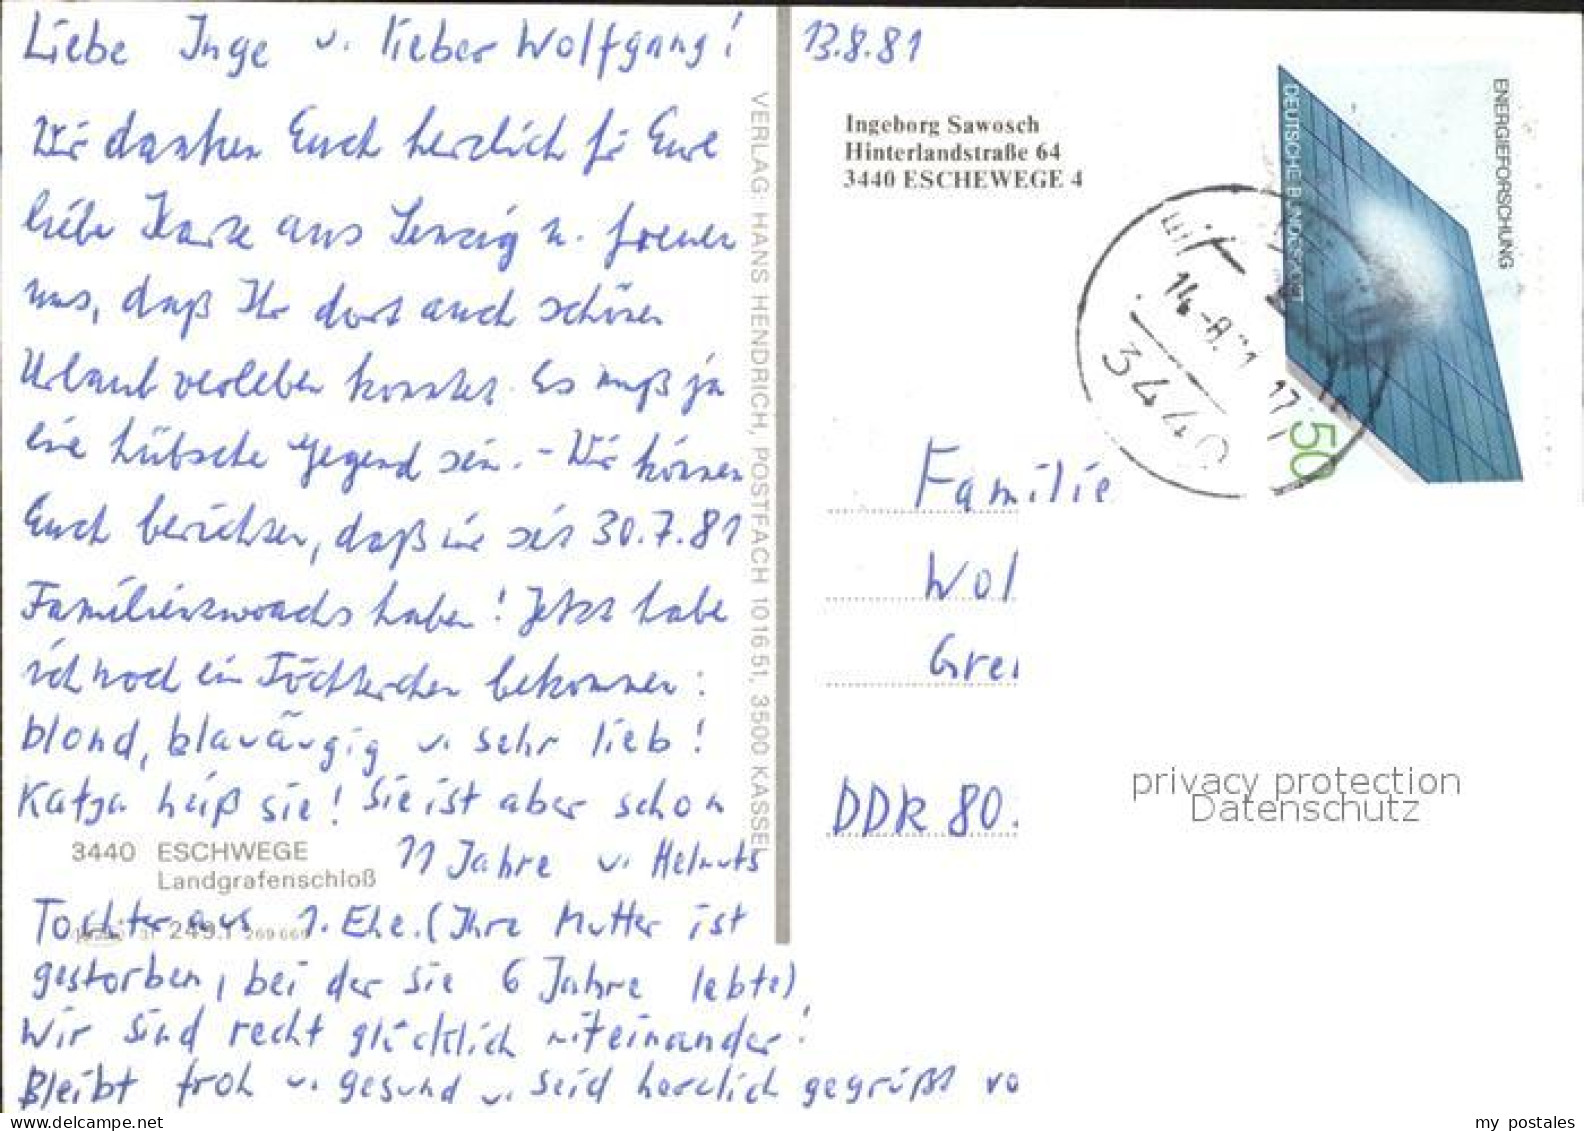 Liebe Inge u. lieber Wolfgang!
Wir danken Euch herzlich für Eure
liebe Karte aus u. freuen
uns, daß Ihr dort auch schönen
Urlaub verleben konntet. Es muß ja
eine hübsche Gegend sein. - Wir können
Euch berichten, daß wir seit 30.7.81
Familienzuwachs haben! Jetzt habe
ich noch ein Töchterchen bekommen:
blond, blauäugig u. sehr lieb!
Katja heißt sie! Sie ist aber schon
11 Jahre u. Helmuts
Tochter aus 1. Ehe. (Ihre Mutter ist
gestorben, bei der sie 6 Jahre lebte)
Wir sind recht glücklich miteinander!
Bleibt froh u. gesund u. seid herzlich gegrüßt vo
3440 ESCHWEGE
Landgrafenschloß
249.1 269669
VERLAG: HANS HENDRICH, POSTFACH 101651, 3500 KASSEL
13.8.81
Ingeborg Sawosch
Hinterlandstraße 64
3440 ESCHEWEGE 4
DEUTSCHE BUNDESPOST
ENERGIEFORSCHUNG
50
14.-8.81 17
3440
Familie
Wol
Grei
DDR 80.
privacy protection
Datenschutz
my postales